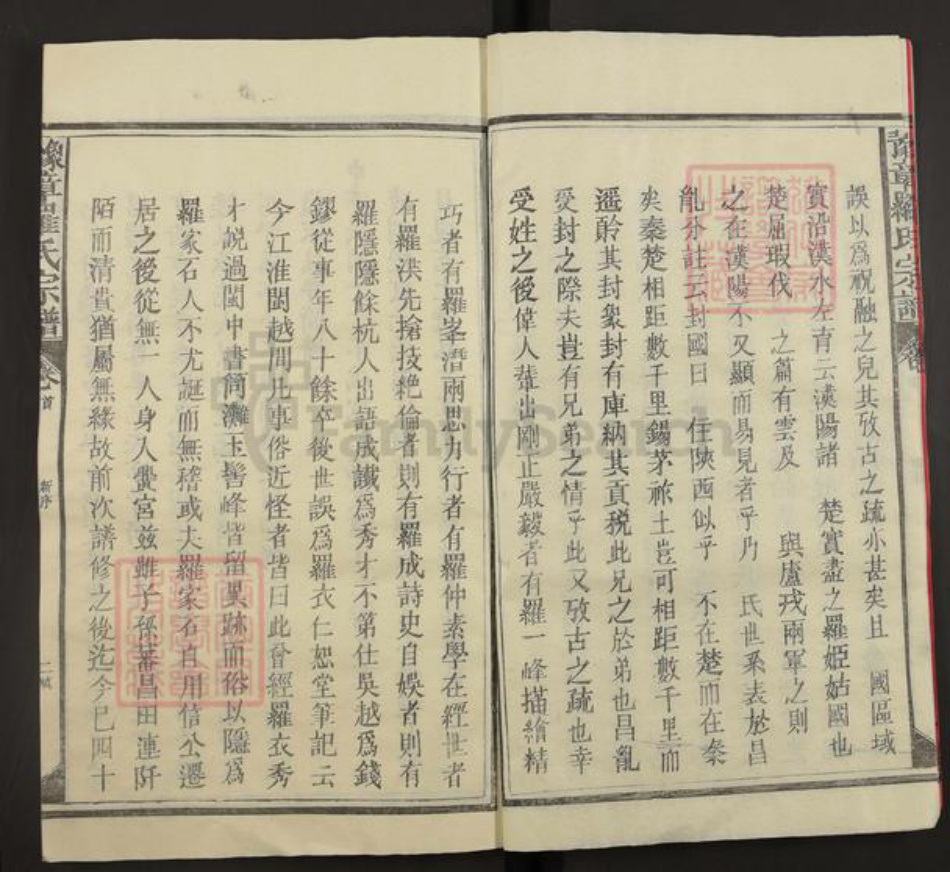 豫章羅氏宗譜
誤以為祝融之兒其攷古之疏亦甚矣且 國區域
實沿漢水左育云漢陽諸 楚實盡之羅姬姑國也
楚屈瑕伐 之篇有雲及 與盧戎兩軍之則
之在漢陽不又顯而易見者乎乃 氏世系表於昌
亂分註云封國曰 住陝西似乎 不在楚而在秦
矣秦楚相距數千里錫茅祚土豈可相距數千里而
遥聆其封象封有庳納其貢税此兄之於弟也昌亂
受封之際夫豈有兄弟之情乎此又攷古之疏也幸
受姓之後偉人輩出剛正嚴毅者有羅一峰描繪精
巧者有羅峯潛兩思力行者有羅仲素學在經世者
有羅洪先搶技絶倫者則有羅成詩史自娛者則有
羅隱隱餘杭人出語成讖為秀才不第仕吳越為錢
鏐從事年八十餘卒後世誤為羅衣仁恕堂筆記云
今江淮閩越間凡事俗近怪者皆曰此曾經羅衣秀
才説過閩中書筒灘玉髻峰皆留異跡而俗以隱為
羅家石人不尤誕而無稽或夫羅家石自用信公遷
居之後從無一人身入黌宮兹雖子孫蕃昌田連阡
陌而清貴猶屬無緣故前次譜修之後迄今已四十
豫章羅氏宗譜
卷首
新序
二
FamilySearch